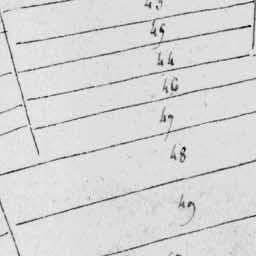 43
45
44
46
47
48
49